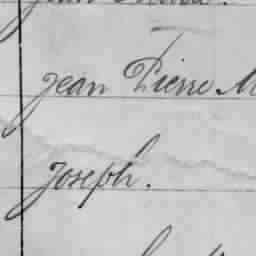 Jean Pierre M
Joseph.